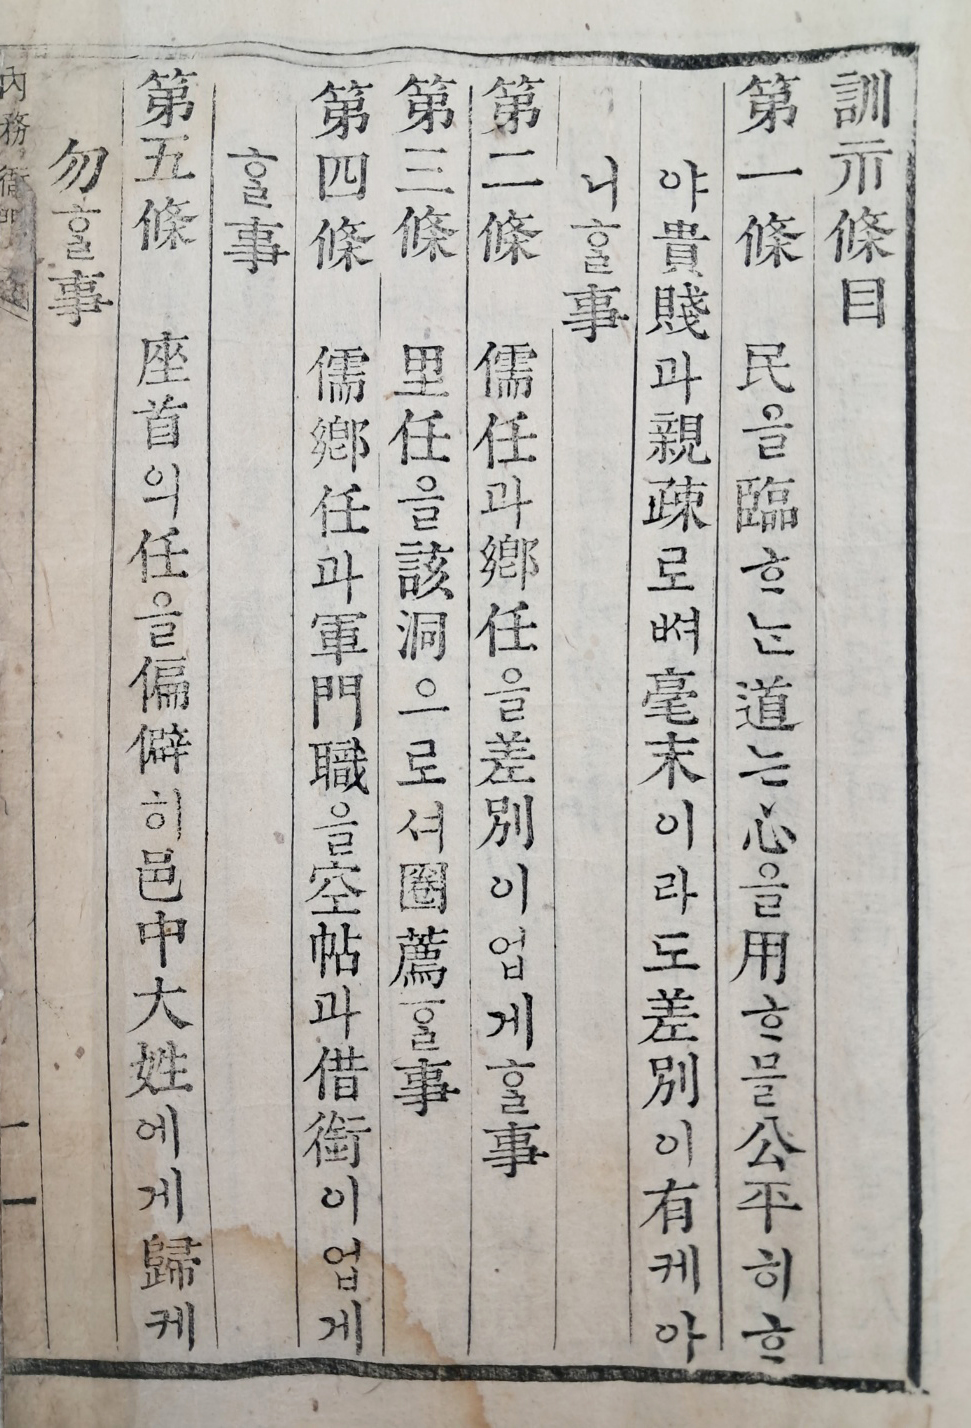 訓示條目
第一條 民을臨ᄒᆞᄂᆞᆫ道ᄂᆞᆫ心을用ᄒᆞ믈公平히ᄒᆞ
야貴賤과親疎로ᄡᅥ毫末이라도差別이有케아
니ᄒᆞᆯ事
第二條 儒任과鄕任을差別이업게ᄒᆞᆯ事
第三條 里任을該洞으로셔圈薦ᄒᆞᆯ事
第四條 儒鄕任과軍門職을空帖과借銜이업게
ᄒᆞᆯ事
第五條 座首의任을偏僻히邑中大姓에게歸케
勿ᄒᆞᆯ事
內務衙門